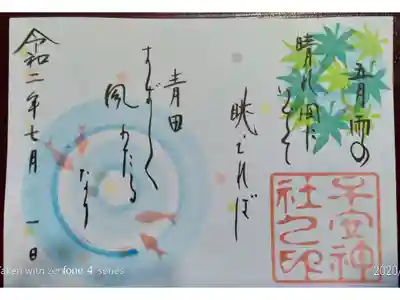 五月雨の
晴れ間にいでて
眺むれば
青田
すずしく
風わたる
なり
令和二年七月一日
子安神
社之印
Taken with zenfone 4 series
2020/